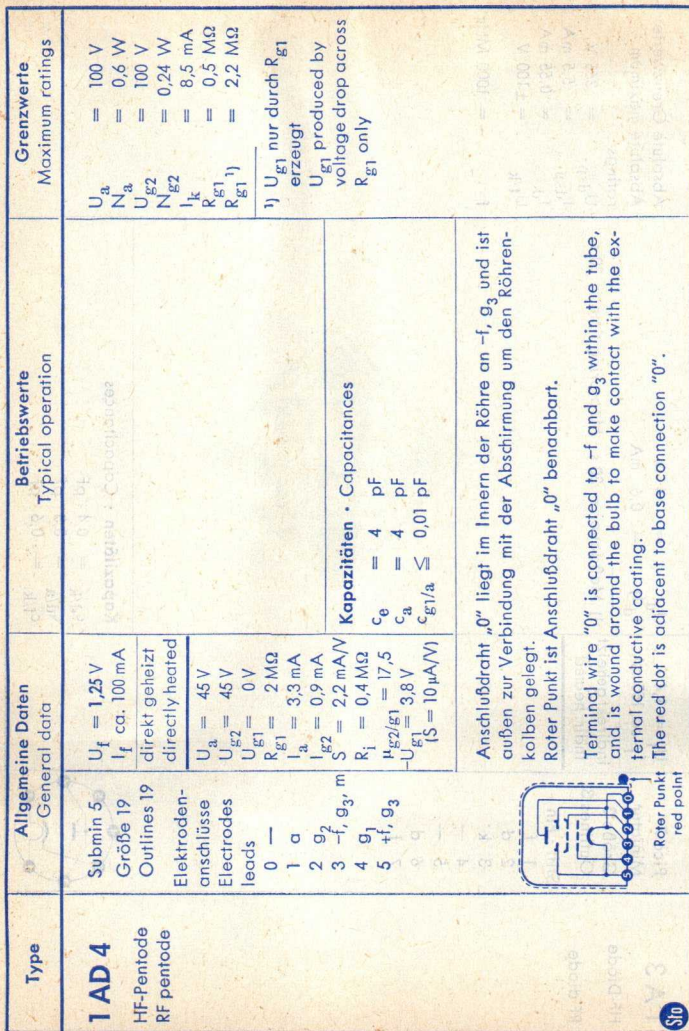 Type
Allgemeine Daten
General data
Betriebswerte
Typical operation
Grenzwerte
Maximum ratings
1 AD 4
HF-Pentode
RF pentode
Submin 5
Größe 19
Outlines 19
Elektroden-
anschlüsse
Electrodes
leads
0 —
1 a
2 g2
3 -f, g3, m
4 g1
5 +f, g3
Uf = 1,25 V
If ca. 100 mA
direkt geheizt
directly heated
Ua = 45 V
Ug2 = 45 V
Ug1 = 0 V
Rg1 = 2 MΩ
Ia = 3,3 mA
Ig2 = 0,9 mA
S = 2,2 mA/V
Ri = 0,4 MΩ
µg2/g1 = 17,5
-Ug1 = 3,8 V
(S = 10 µA/V)
Kapazitäten · Capacitances
ce = 4 pF
ca = 4 pF
cg1/a ≤ 0,01 pF
Ua = 100 V
Na = 0,6 W
Ug2 = 100 V
Ng2 = 0,24 W
Ik = 8,5 mA
Rg1 = 0,5 MΩ
Rg1 ¹) = 2,2 MΩ
¹) Ug1 nur durch Rg1
erzeugt
Ug1 produced by
voltage drop across
Rg1 only
Anschlußdraht „0" liegt im Innern der Röhre an -f, g3 und ist
außen zur Verbindung mit der Abschirmung um den Röhren-
kolben gelegt.
Roter Punkt ist Anschlußdraht „0" benachbart.
Terminal wire "0" is connected to -f and g3 within the tube,
and is wound around the bulb to make contact with the ex-
ternal conductive coating.
The red dot is adjacent to base connection "0".
5 4 3 2 1 0
Roter Punkt
red point
Sto